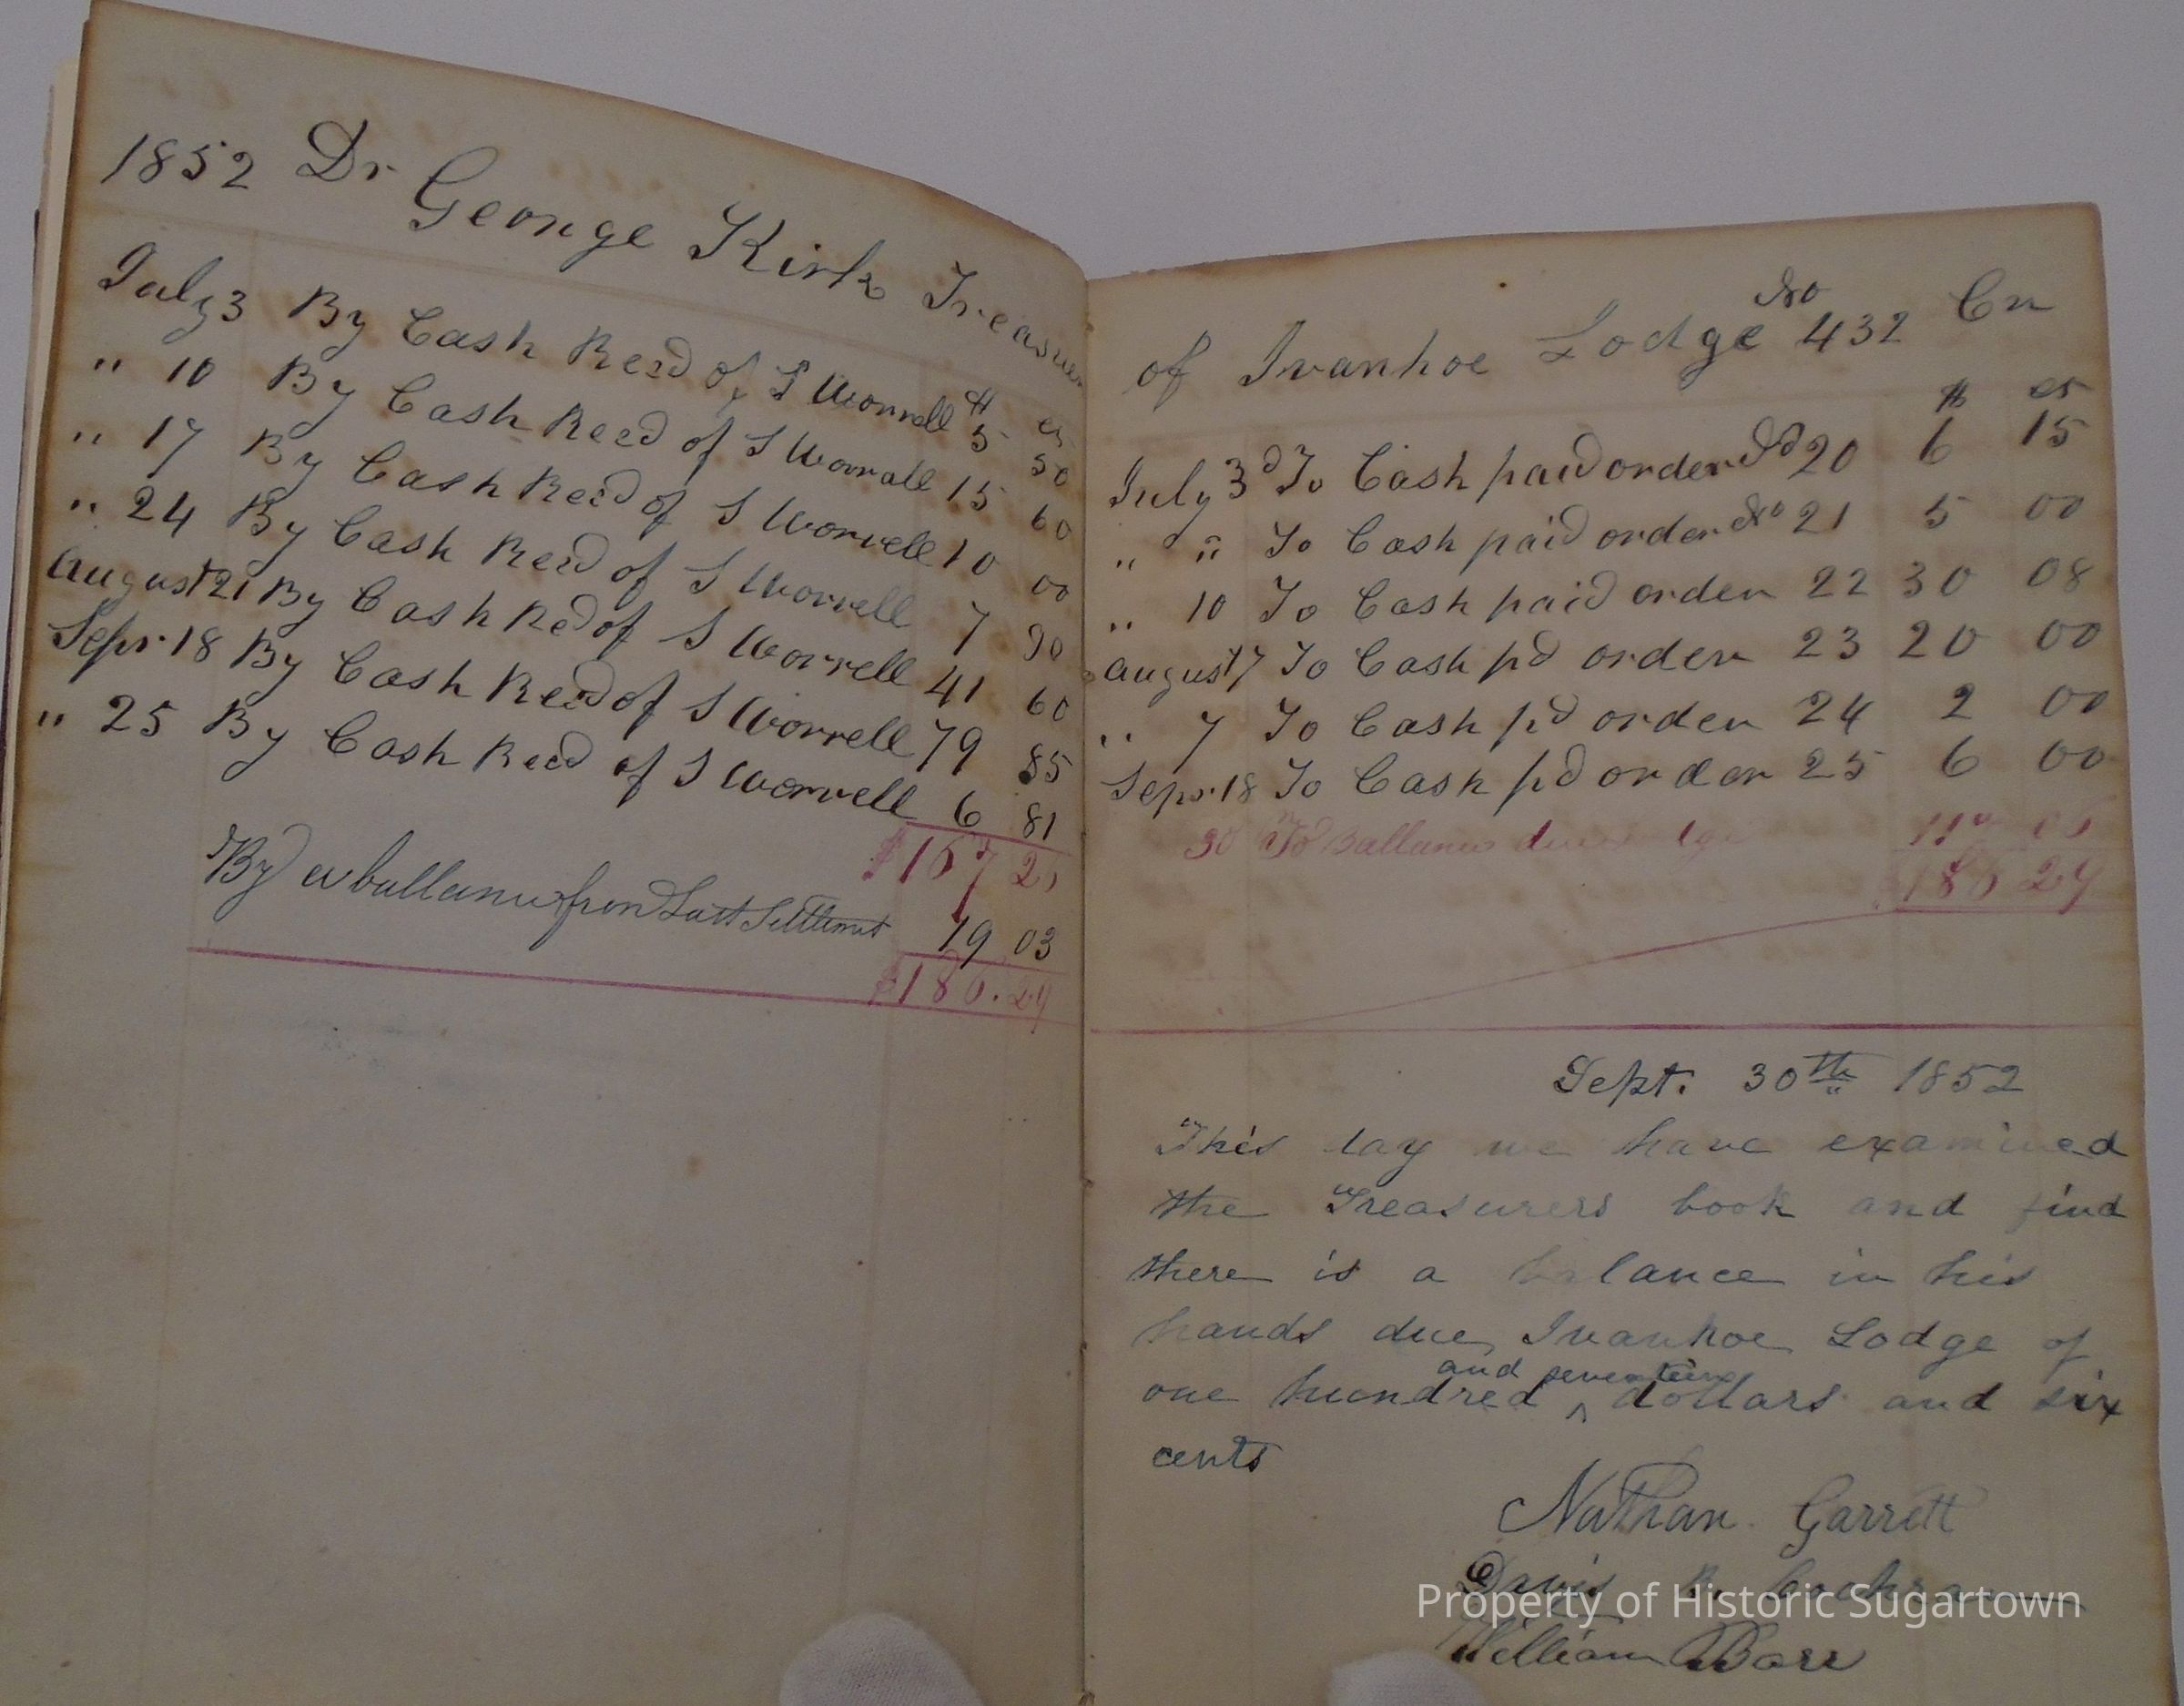 1852 Dr George Kirk Treasurer
$ cts
July 3 By Cash Recd of S Worrell 5 50
" 10 By Cash Recd of S Worrall 15 60
" 17 By Cash Recd of S Worrell 10 00
" 24 By Cash Recd of S Worrell 7 90
August 21 By Cash Recd of S Worrell 41 60
Sepr. 18 By Cash Recd of S Worrell 79 85
" 25 By Cash Recd of S Worrell 6 81
$167 26
By a ballance from Last Settlement 19 03
$186.29
of Ivanhoe Lodge No 432 Cr
$ cts
July 3d To Cash paid order No 20 6 15
" " To Cash paid order No 21 5 00
" 10 To Cash paid order 22 30 08
August 7 To Cash pd order 23 20 00
" 7 To Cash pd order 24 2 00
Sepr. 18 To Cash pd order 25 6 00
30 To Ballance due 06
186 29
Sept. 30th 1852
This day we have examined
the Treasurers book and find
there is a balance in his
hands due Ivanhoe Lodge of
and seventeen
one hundred ^ dollars and six
cents
Nathan Garrett
Davis B.
William Barr
Property of Historic Sugartown